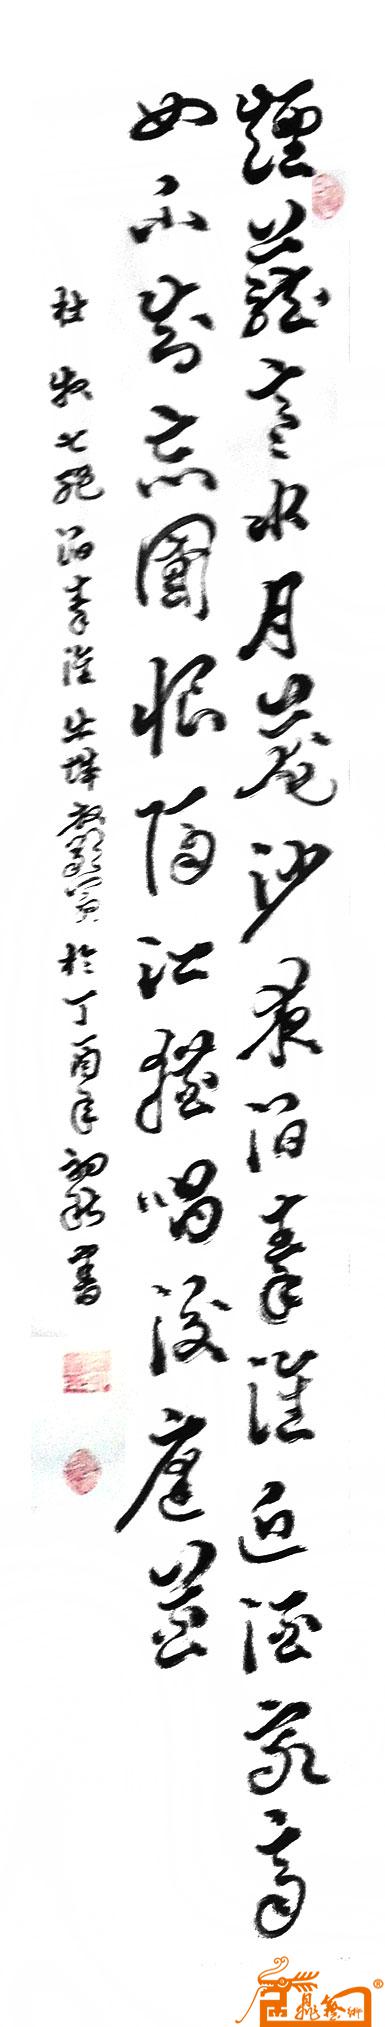 煙籠寒水月籠沙夜泊秦淮近酒家商
女不知亡國恨隔江猶唱後庭花
杜牧七絕泊秦淮 於丁酉年初秋書